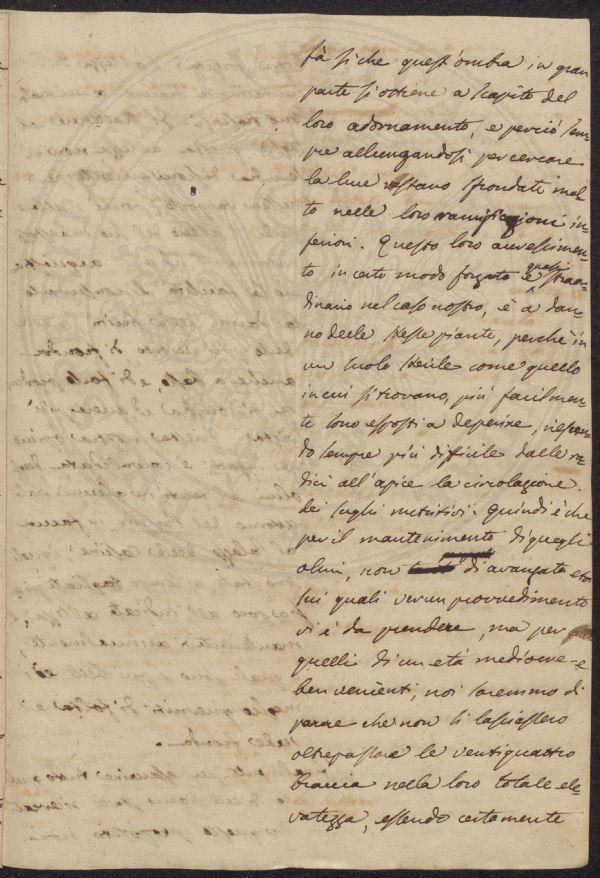 fà sì che quest'ombra in gran
parte si ottiene a scapito del
loro adornamento, e perciò sem-
pre allungandosi per cercare
la luce restano sfrondati mol-
to nelle loro ramificazioni in-
feriori. Questo loro accrescimen-
to in certo modo forzato e quasi straor-
dinario nel caso nostro, è a dan-
no delle stesse piante, perchè in
un suolo sterile come quello
in cui si trovano, più facilmen-
te sono esposti a deperire, riescen-
do sempre più difficile dalle ra-
dici all'apice la circolazione
dei sughi nutritivi. Quindi è che
per il mantenimento di quegli
olmi, non di avanzata età
sui quali verun provvedimento
vi è da prendere, ma per
quelli di un età mediocre e
ben venienti, noi saremmo di
parere che non si lasciassero
oltrepassare le ventiquattro
braccia nella loro totale ele-
vatezza, essendo certamente